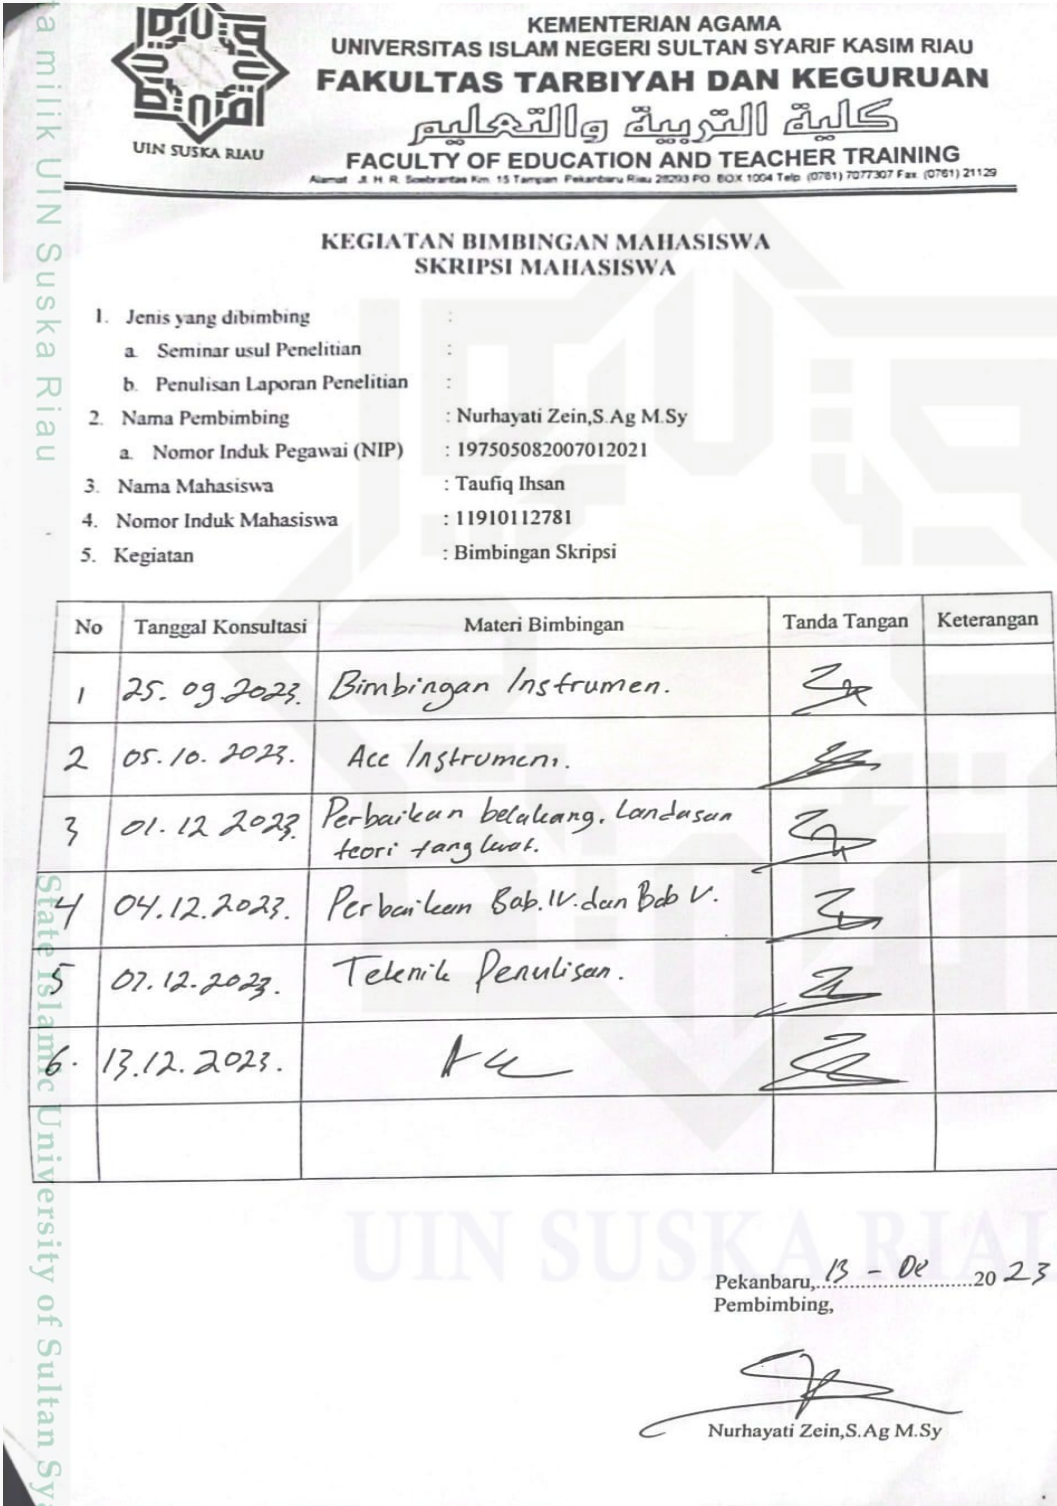 KEMENTERIAN AGAMA
UNIVERSITAS ISLAM NEGERI SULTAN SYARIF KASIM RIAU
FAKULTAS TARBIYAH DAN KEGURUAN
كلية التربية والتعليم
FACULTY OF EDUCATION AND TEACHER TRAINING
Alamat : Jl. H. R. Soebrantas Km. 15 Tampan Pekanbaru Riau 28293 PO. BOX 1004 Telp. (0761) 7077307 Fax. (0761) 21129
UIN SUSKA RIAU
KEGIATAN BIMBINGAN MAHASISWA
SKRIPSI MAHASISWA
1. Jenis yang dibimbing :
a. Seminar usul Penelitian :
b. Penulisan Laporan Penelitian :
2. Nama Pembimbing : Nurhayati Zein,S.Ag M.Sy
a. Nomor Induk Pegawai (NIP) : 197505082007012021
3. Nama Mahasiswa : Taufiq Ihsan
4. Nomor Induk Mahasiswa : 11910112781
5. Kegiatan : Bimbingan Skripsi
No Tanggal Konsultasi Materi Bimbingan Tanda Tangan Keterangan
1 25.09.2023. Bimbingan Instrumen.
2 05.10.2023. Acc Instrumen.
3 01.12 2023. Perbaikan belakang, Landasan
teori
4 04.12.2023. Perbaikan Bab.IV.dan Bab V.
5 07.12.2023. Teknik Penulisan.
6. 13.12.2023. Acc
UIN SUSKA RIAU
Pekanbaru, 13 - De 2023
Pembimbing,
Nurhayati Zein,S.Ag M.Sy
ta milik UIN Suska Riau
State Islamic University of Sultan Sya